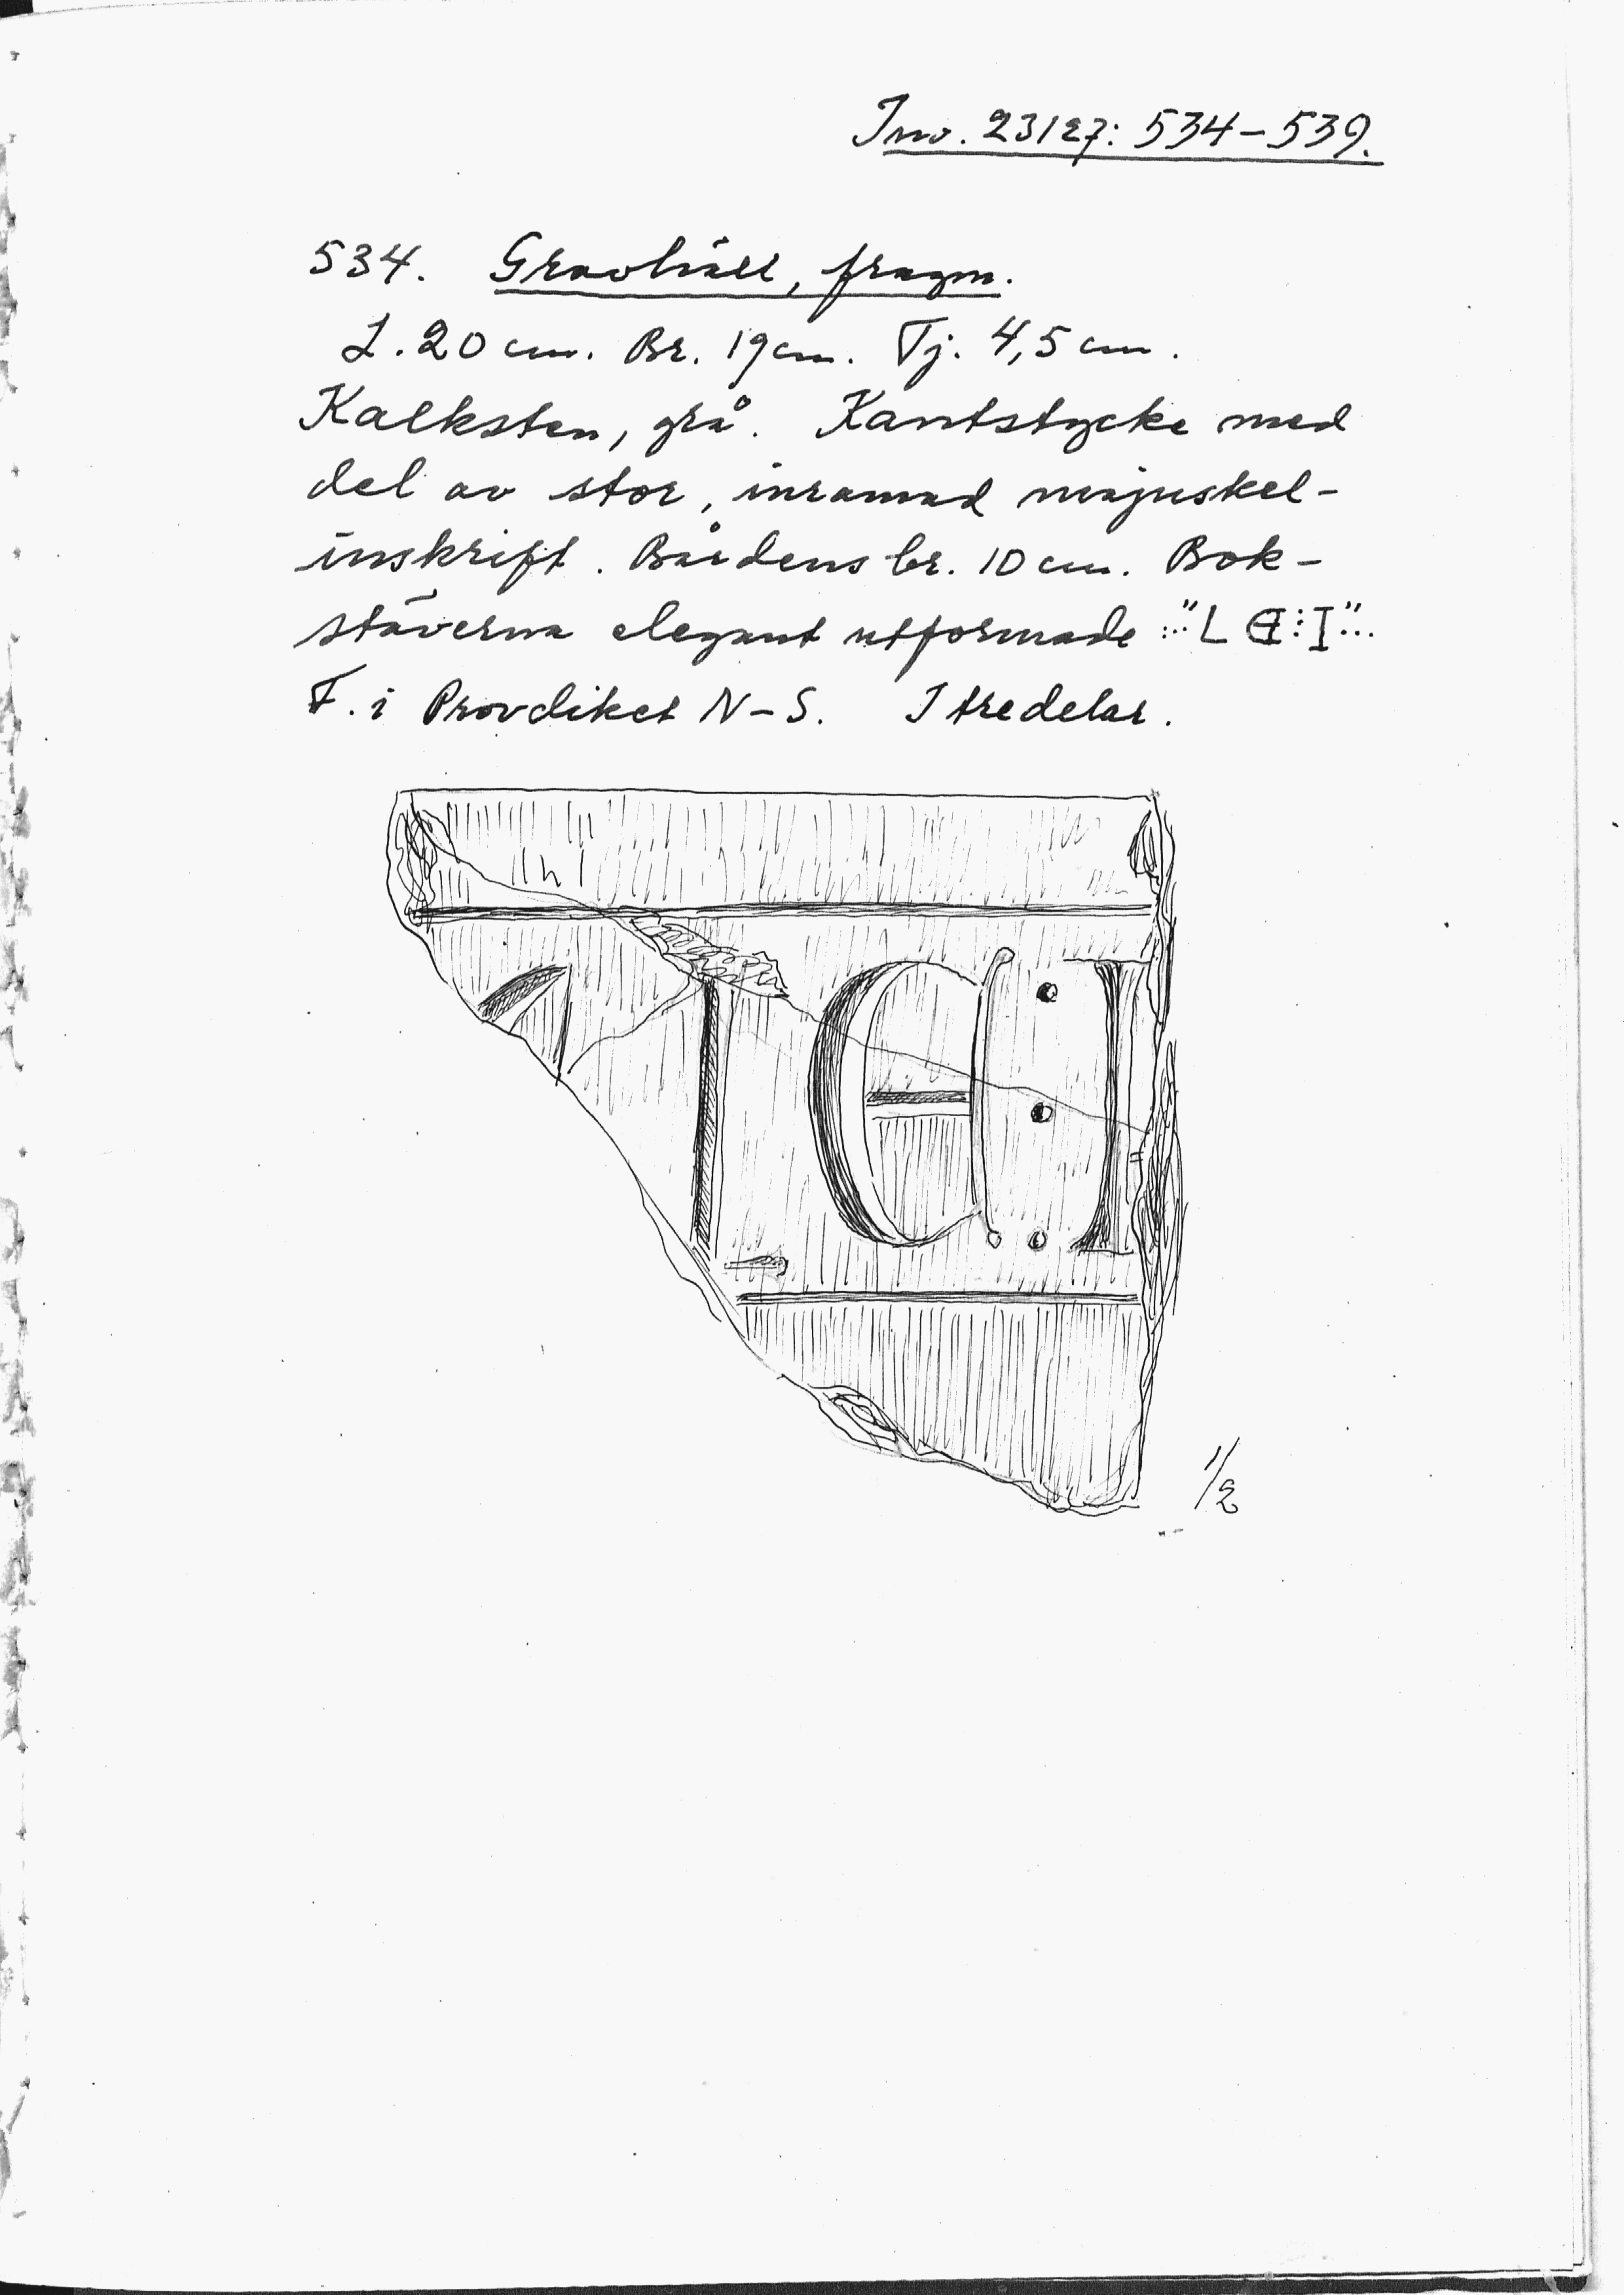 Inv. 23127: 534–539.
534. Gravhäll, fragm.
L. 20 cm. Br. 19 cm. Tj. 4,5 cm.
Kalksten, grå. Kantstycke med
del av stor, inramad majuskel-
inskrift. Bårdens br. 10 cm. Bok-
stäverna elegant utformade ..."L E⋮I"...
F. i Provdiket N–S. I tre delar.
1/2